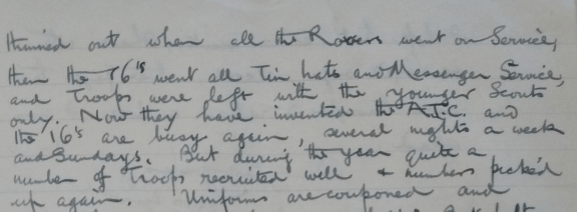 thinned out when all the Rovers went on Service,
then the 16's went all Tin hats and Messenger Service,
and Troops were left with the younger Scouts
only. Now they have invented the A.T.C. and
the 16's are busy again, several nights a week
and Sundays. But during the year quite a
number of Troops recruited well & numbers picked
up again. Uniforms are couponed and